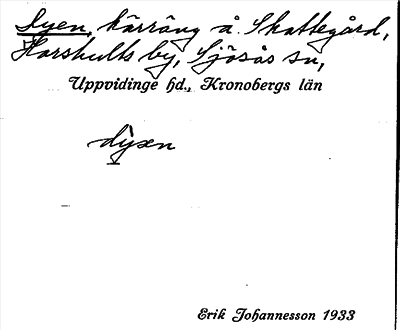 Dyen, kärräng å Skattegård,
Horshults by, Sjösås sn,
Uppvidinge hd., Kronobergs län
dyən
Erik Johannesson 1933